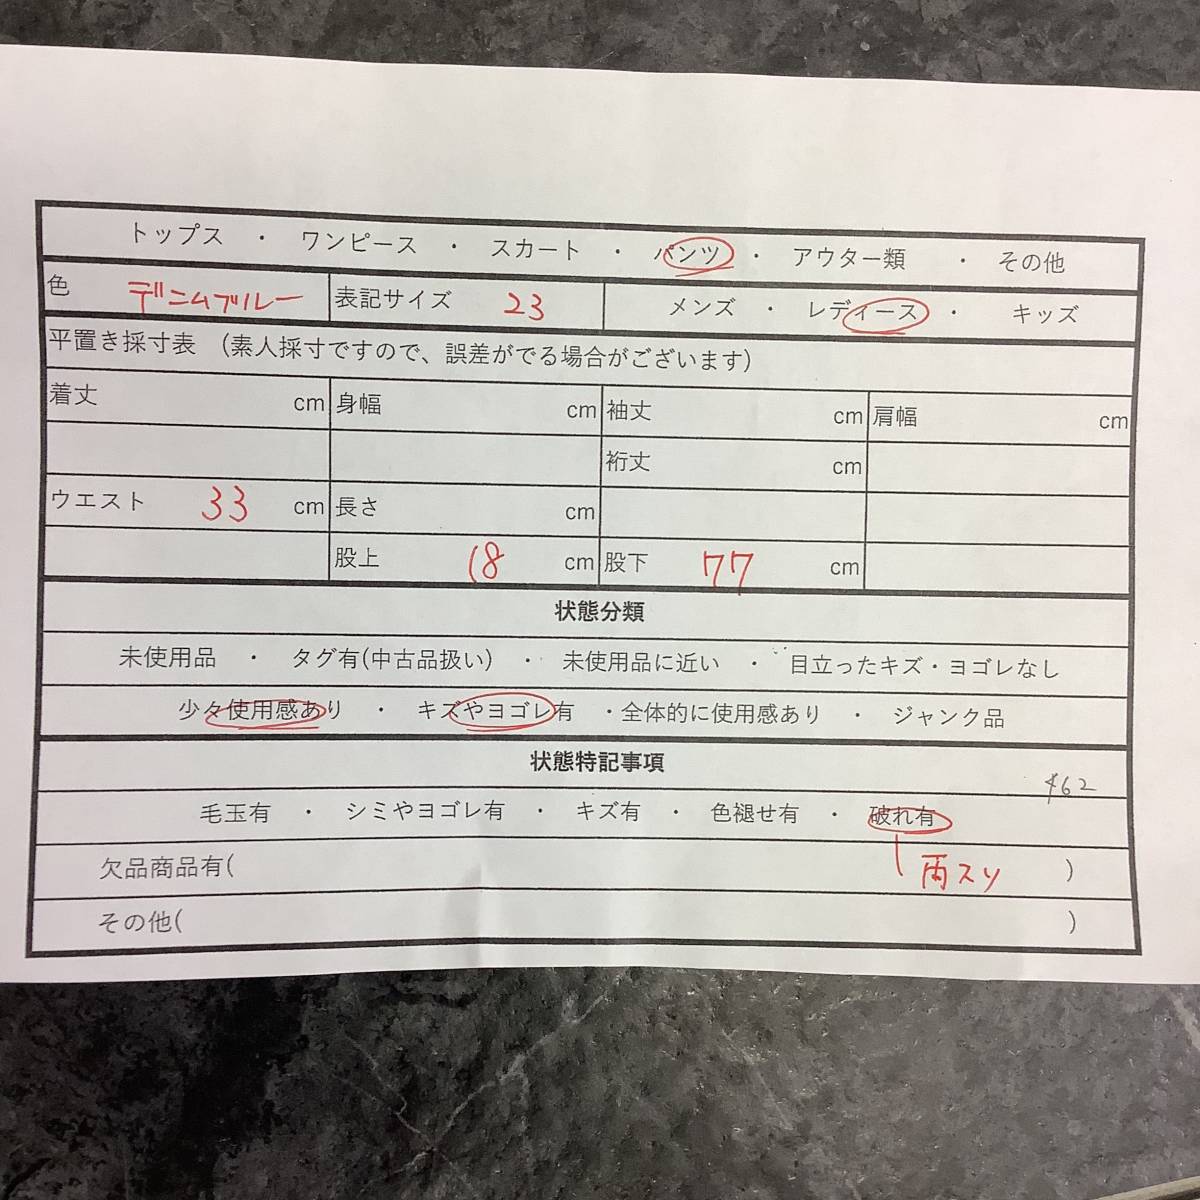 トップス ・ ワンピース ・ スカート ・ パンツ ・ アウター類 ・ その他
色 デニムブルー 表記サイズ 23 メンズ ・ レディース ・ キッズ
平置き採寸表 (素人採寸ですので、誤差がでる場合がございます)
着丈 cm 身幅 cm 袖丈 cm 肩幅 cm
裄丈 cm
ウエスト 33 cm 長さ cm
股上 18 cm 股下 77 cm
状態分類
未使用品 ・ タグ有(中古品扱い) ・ 未使用品に近い ・ 目立ったキズ・ヨゴレなし
少々使用感あり ・ キズやヨゴレ有 ・全体的に使用感あり ・ ジャンク品
状態特記事項
毛玉有 ・ シミやヨゴレ有 ・ キズ有 ・ 色褪せ有 ・ 破れ有
欠品商品有( 両スソ )
その他( )